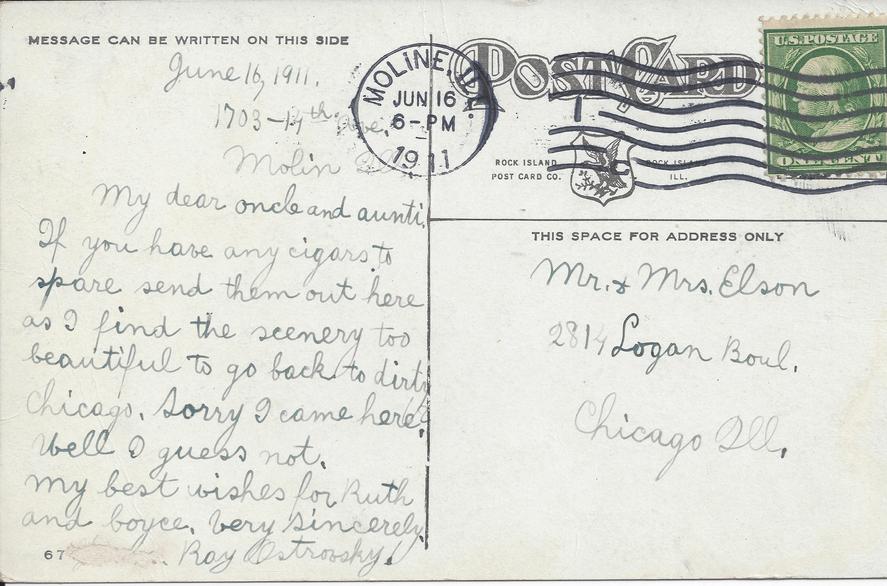 MESSAGE CAN BE WRITTEN ON THIS SIDE
June 16, 1911.
1703-14th. Ave,
Molin Ill
My dear oncle and aunti,
If you have any cigars to
spare send them out here
as I find the scenery too
beautiful to go back to dirty
Chicago. Sorry I came here?
Well I guess not.
My best wishes for Ruth
and boyce. Very Sincerely,
Ray Ostrovsky.
67
MOLINE, ILL.
JUN 16
6-PM
1911
POST CARD
U.S. POSTAGE
ONE CENT
ROCK ISLAND
POST CARD CO.
ROCK ISLAND
ILL.
THIS SPACE FOR ADDRESS ONLY
Mr. & Mrs. Elson
2814 Logan Boul.
Chicago Ill.